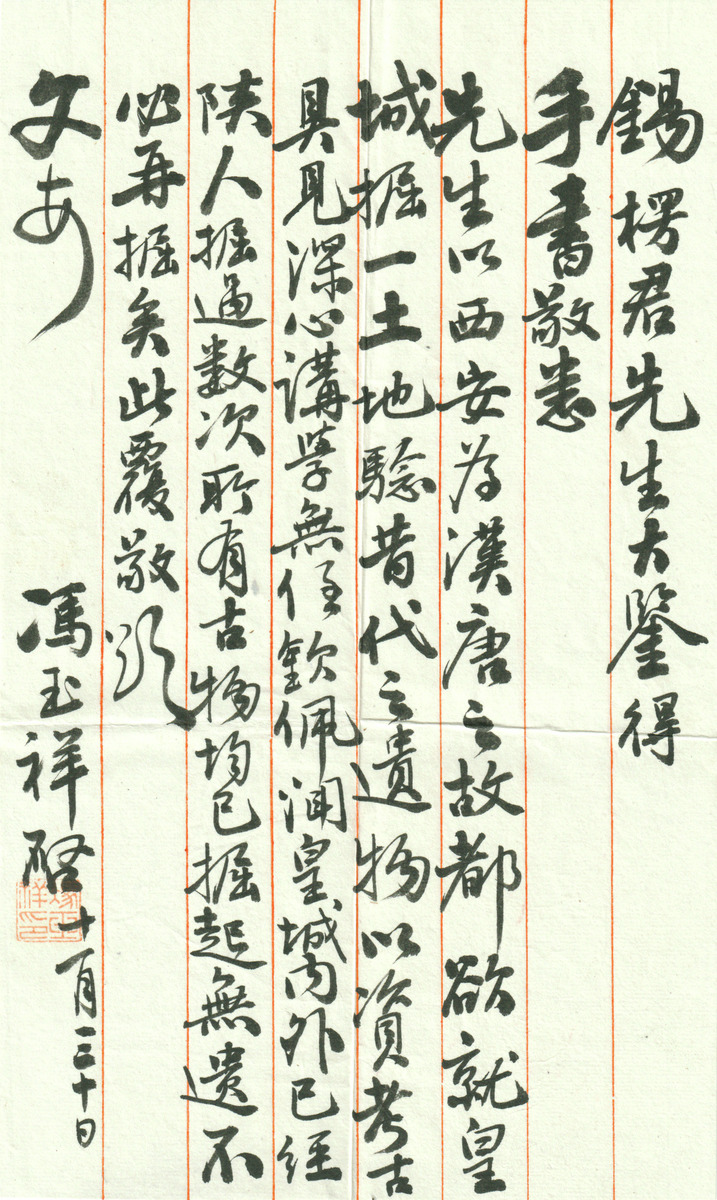 錫楞君先生大鑒得
手書敬悉
先生以西安为漢唐之故都欲就皇
城掘一土地驗昔代之遺物以資考古
具見深心講學無任欽佩聞皇城內外已經
陝人掘過數次所有古物均已掘起無遺不
必再掘矣此覆敬頌
文安
馮玉祥啓 十一月三十日
馮玉祥印